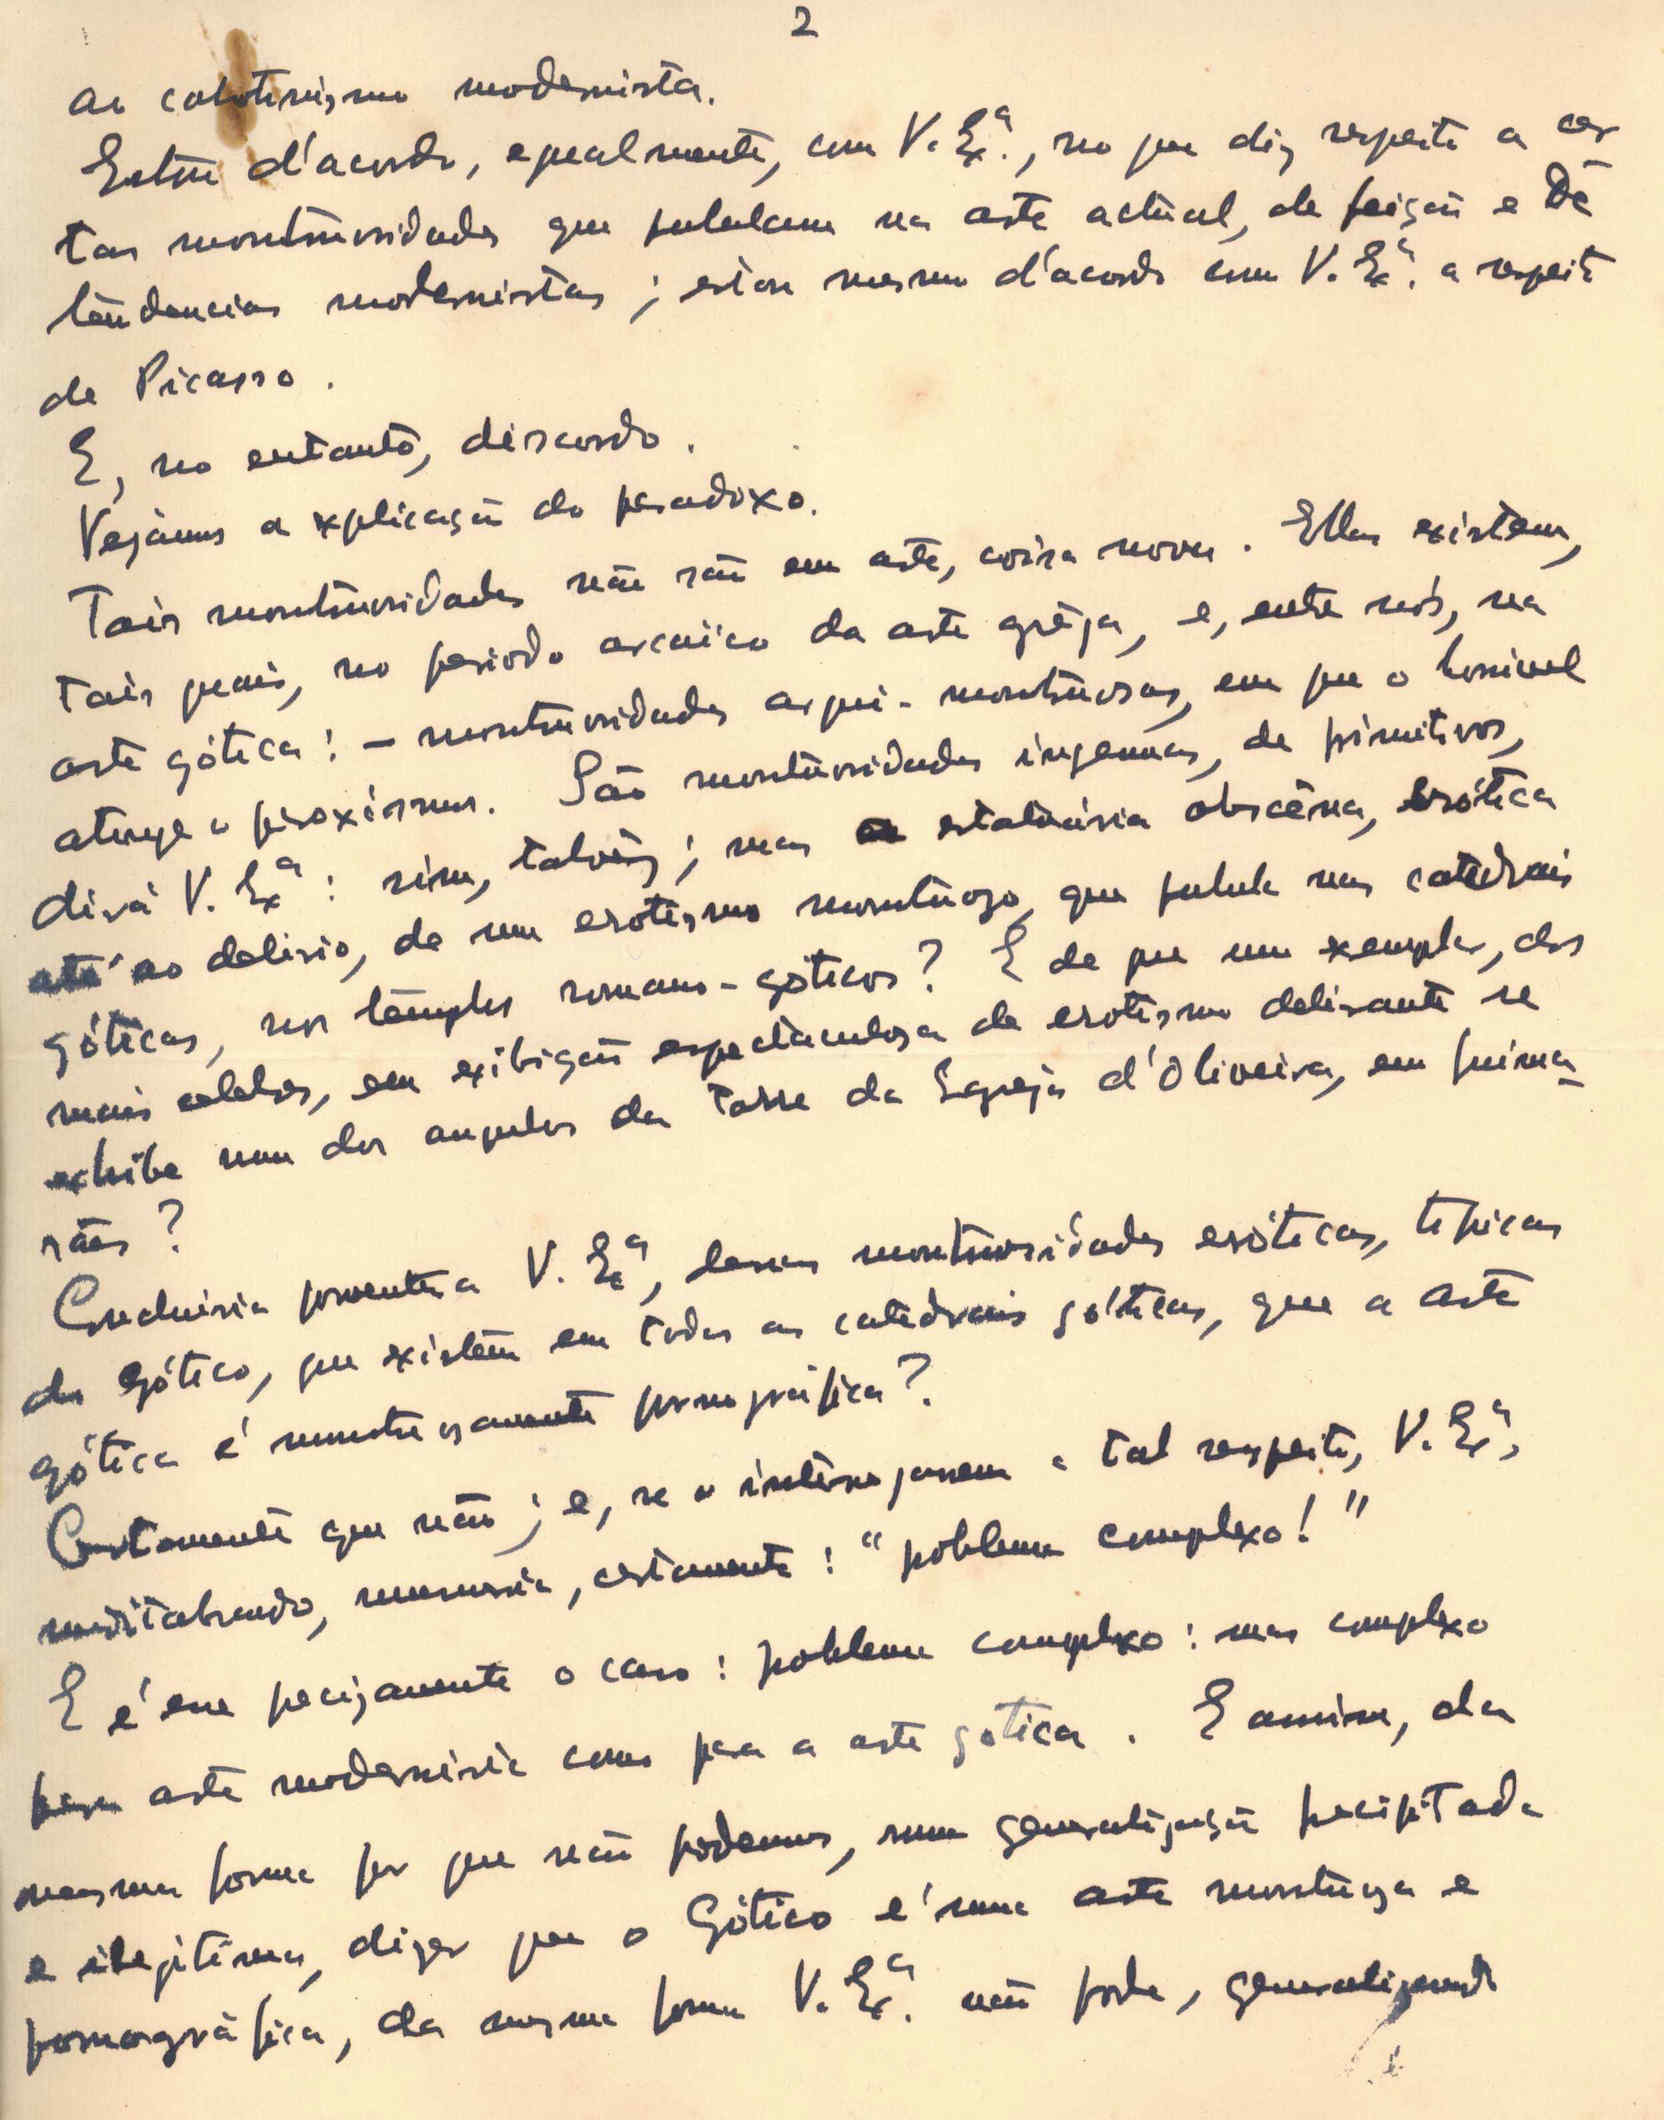 2
ao cabotinismo modernista.
Estou d'acordo, egualmente, com V. Exª., no que diz respeito a cer
tas monstruosidades que pululam na arte actual, de feição e de
tendencias modernistas; estou mesmo d'acordo com V. Exª. a respeito
de Picasso.
E, no entanto, discordo.
Vejâmos a explicação do paradoxo.
Tais monstruosidades não são em arte, coisa nova. Ellas existem,
tais quais, no periodo arcaico da arte grêga, e, entre nós, na
arte gótica: - monstruosidades arqui-monstruosas, em que o horrivel
atinge o paroxismo. São monstruosidades ingenuas, de primitivos,
dirá V. Exª: sim, talvêz; mas a estatuária obscêna, erótica
até ao delirio, de um erotismo monstruozo, que pulula nas catedrais
góticas, nos templos romano-goticos? E de que um exemplar, dos
mais celebres, em exibição espectaculosa de erotismo delirante se
exhibe num dos angulos da Torre da Egreja d'Oliveira, em Guima_
rães?
Concluiria porventura V. Exª, dessas monstruosidades eróticas, tipicas
do gótico, que existem em todas as catedrais góticas, que a arte
gótica é monstruosamente pornográfica?
Certamente que não; e, se o interrogassem a tal respeito, V. Exª,
meditabundo, murmuraria, certamente: "problema complexo!"
E é esse precizamente o caso: problema complexo: mas complexo
para arte modernista como para a arte gotica. E assim, da
mesma forma por que não podemos, numa generalização precipitada
e ilegitima, dizer que o Gótico é uma arte monstruoza e
pornográfica, da mesma forma V. Exª. não pode, generalizando